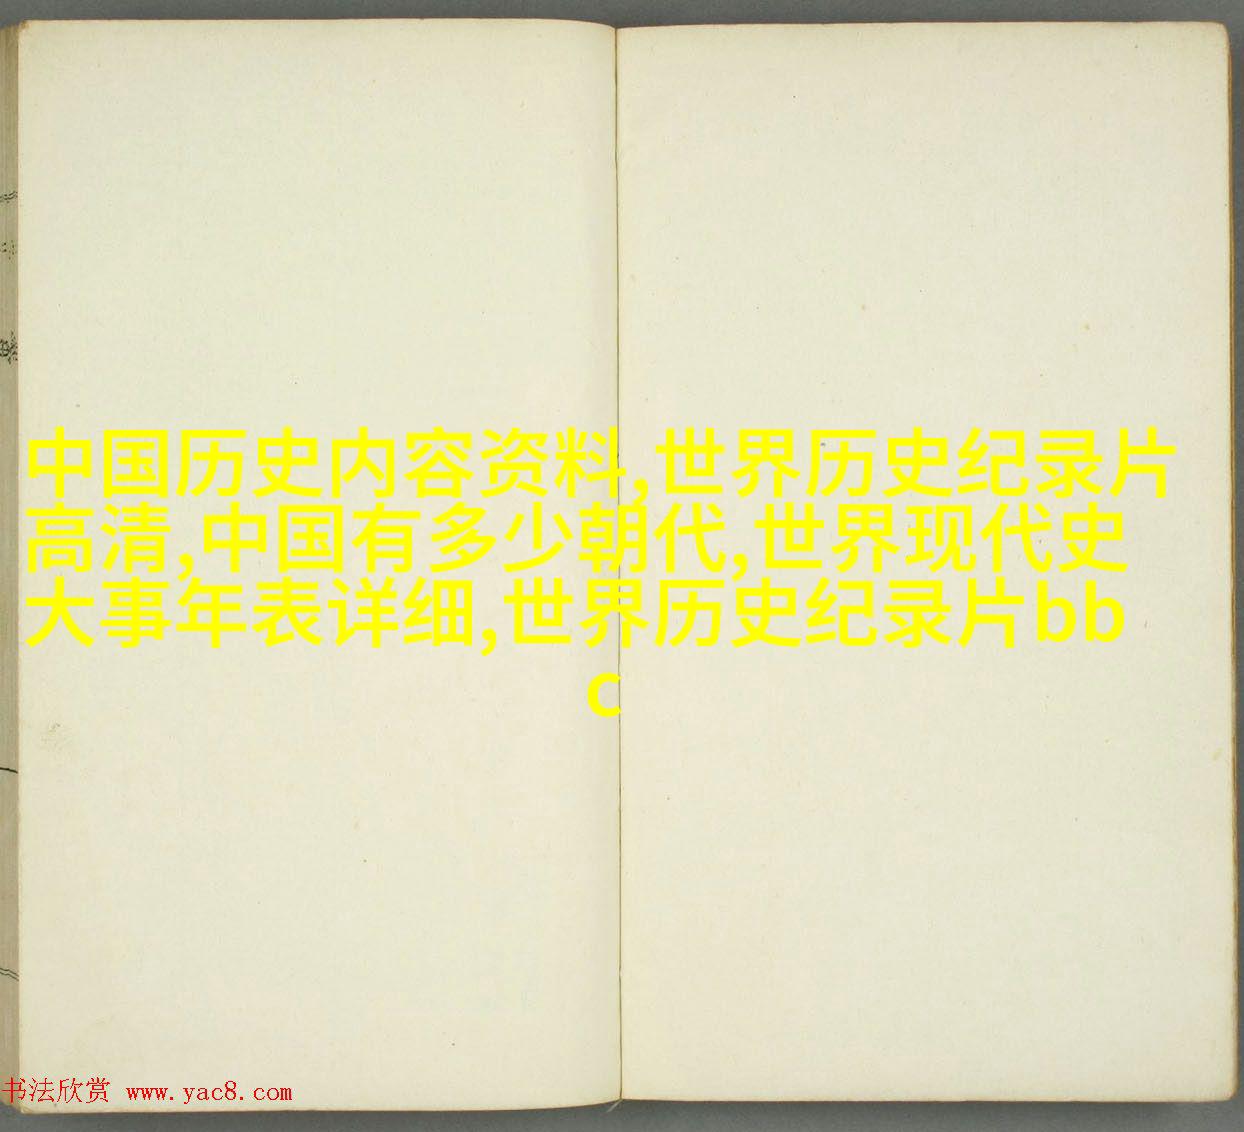 中国历史内容资料,世界历史纪录片
高清,中国有多少朝代,世界现代史
大事年表详细,世界历史纪录片bb
c
书法欣赏 www.yac8.com